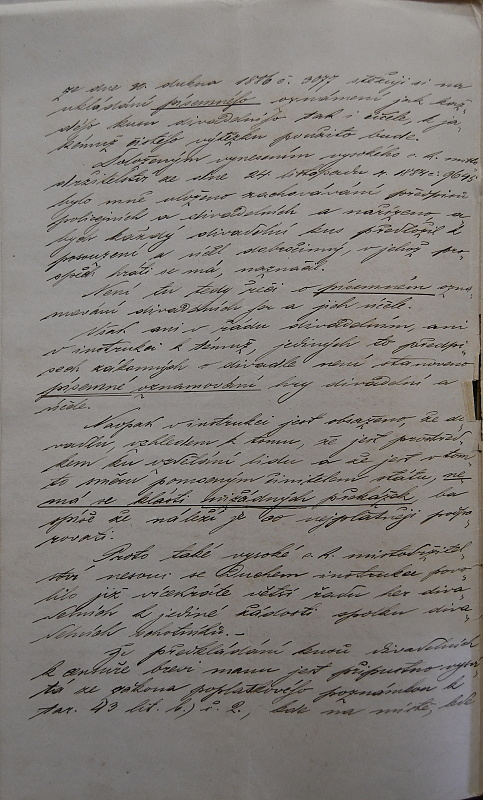 ze dne 20. dubna 1886 č. 3077 stěžuji si na
ukládání písemného oznámení jak kaž-
dého kusu divadelního tak i účele, k ja-
kému čistého výtěžku použito bude.
Doloženým vynesením vysokého c. k. místo-
držitelství ze dne 24. listopadu r. 1884 č.
bylo mně uloženo zachovávání předpisů
policejních a divadelních a nařízeno, a-
bych každý divadelní kus předložil k
posouzení a účel dobročinný, v jehož pro-
spěch hráti se má, naznačil.
Není tu tedy řeči o písemném ozna-
mování divadelních her a jich účele.
Však ani v řádu divadelním, ani
v instrukci k témuž, jediných to předpi-
sech zákonných o divadle není stanoveno
písemné oznamování hry divadelní a
účele.
Naopak v instrukci jest obsaženo, že di-
vadlu, vzhledem k tomu, že jest prostřed-
kem ku vzdělání lidu a že jest v tom-
to směru pomocným činitelem státu, ne-
má se klásti nižádných překážek, ba
spíše že náleží je co nejplatněji podpo-
rovati.
Proto také vysoké c. k. místodržitel-
ství nesouc se duchem instrukce povo-
lilo již vícekráte větší řadu her diva-
delních k jediné žádosti spolku diva-
delních ochotníků. –
Že předkládání kusů divadelních
k censuře brevi manu jest přípustno vysví-
tá ze zákona poplatkového poznámkou k
par. 43 lit. b.) č. 2., kde na místě, kde